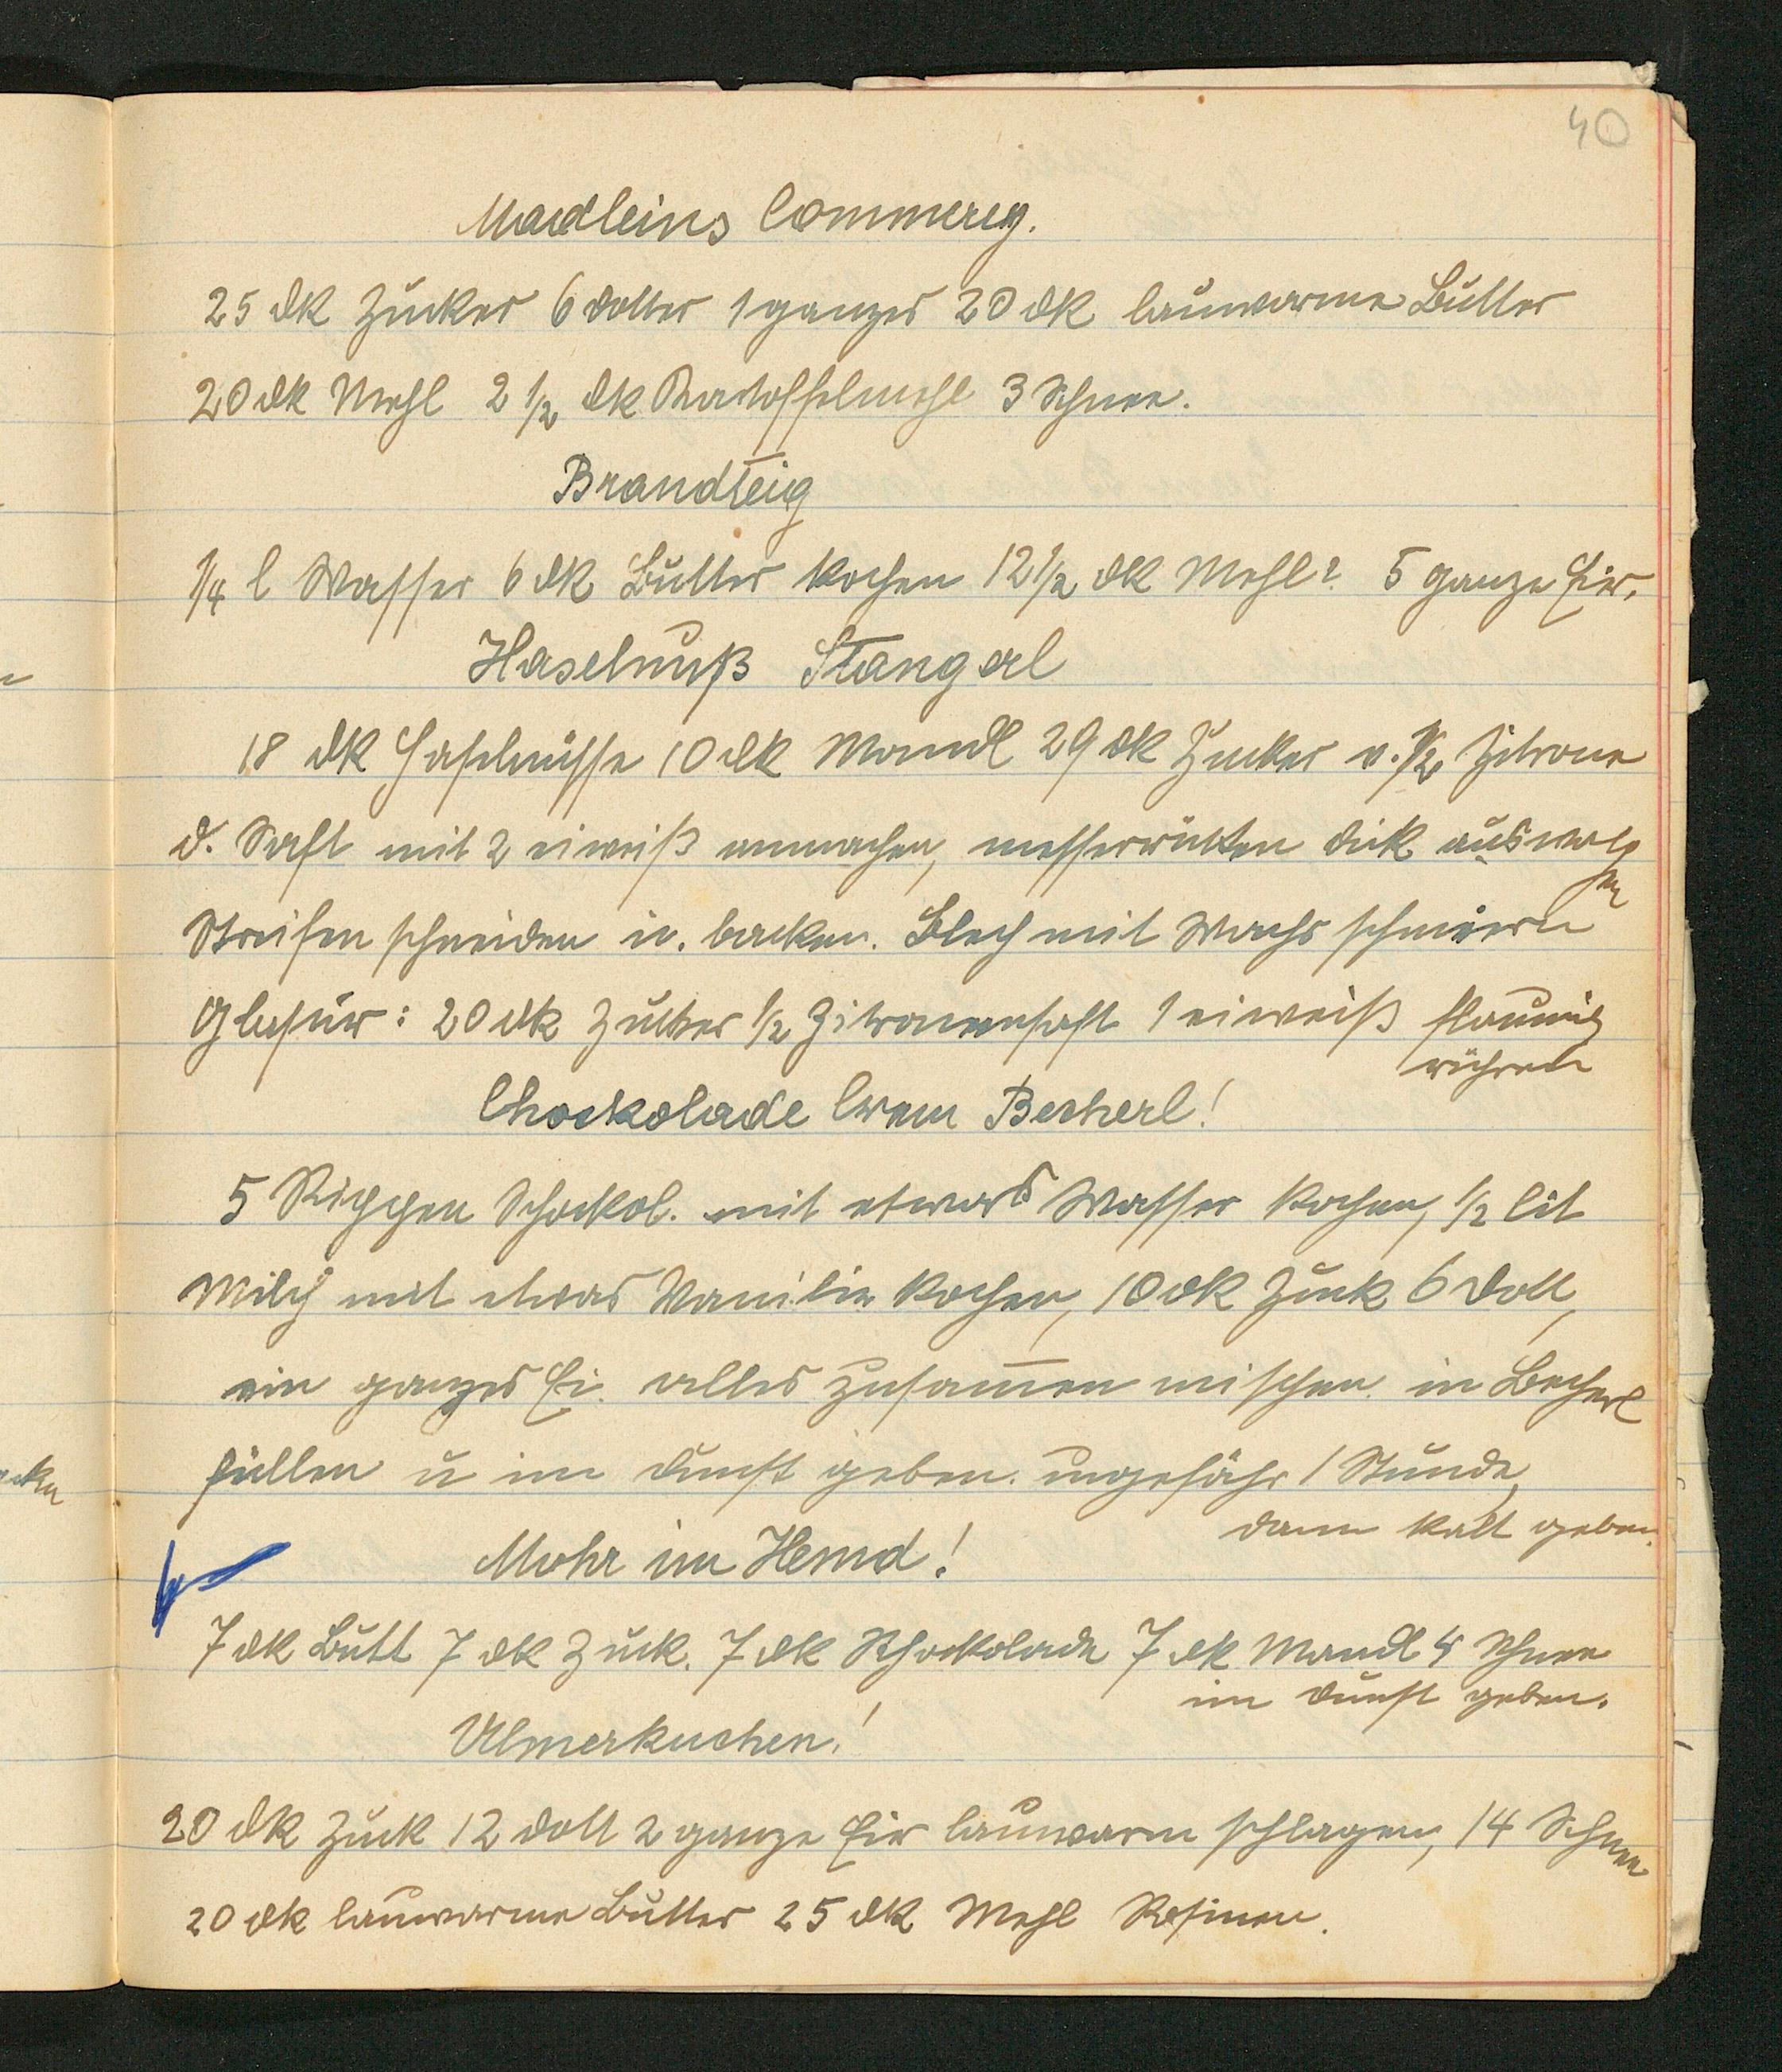 40
Madleins Commercy.
25 dk Zucker 6 Dotter 1 ganzes 20 dk lauwarme Butter
20 dk Mehl 2 1/2 dk Kartoffelmehl 3 Schnee.
Brandteig
1/4 l Wasser 6 dk Butter kochen 12 1/2 dk Mehl? 5 ganze Eier.
Haselnuß Stangerl
18 dk Haselnüsse 10 dk Mandl 29 dk Zucker v. 1/2 Zitrone
d. Saft mit 2 eiweiß anmachen, messerrücken dick auswalg
en
Streifen schneiden u. backen. Blech mit Wachs schmieren
Glasur: 20 dk Zucker 1/2 Zitronensaft 1 eiweiß flaumig
rühren
Chockolade Crem Becherl!
5 Rippen Schockol. mit etwas Wasser kochen, 1/2 lit
Milch mit etwas Vanilie kochen, 10 dk Zuck 6 Dott,
ein ganzes Ei. alles zusammen mischen in Becherl
füllen u im Dunst geben. ungefähr 1 Stunde,
dann kalt geben.
Mohr im Hemd!
7 dk Butt 7 dk Zuck. 7 dk Schokolade 7 dk Mandl 4 Schnee
im Dunst geben.
Ulmerkuchen!
20 dk Zuck 12 Dott 2 ganze Eier lauwarm schlagen, 14 Schnee
20 dk lauwarme Butter 25 dk Mehl Rosinen.